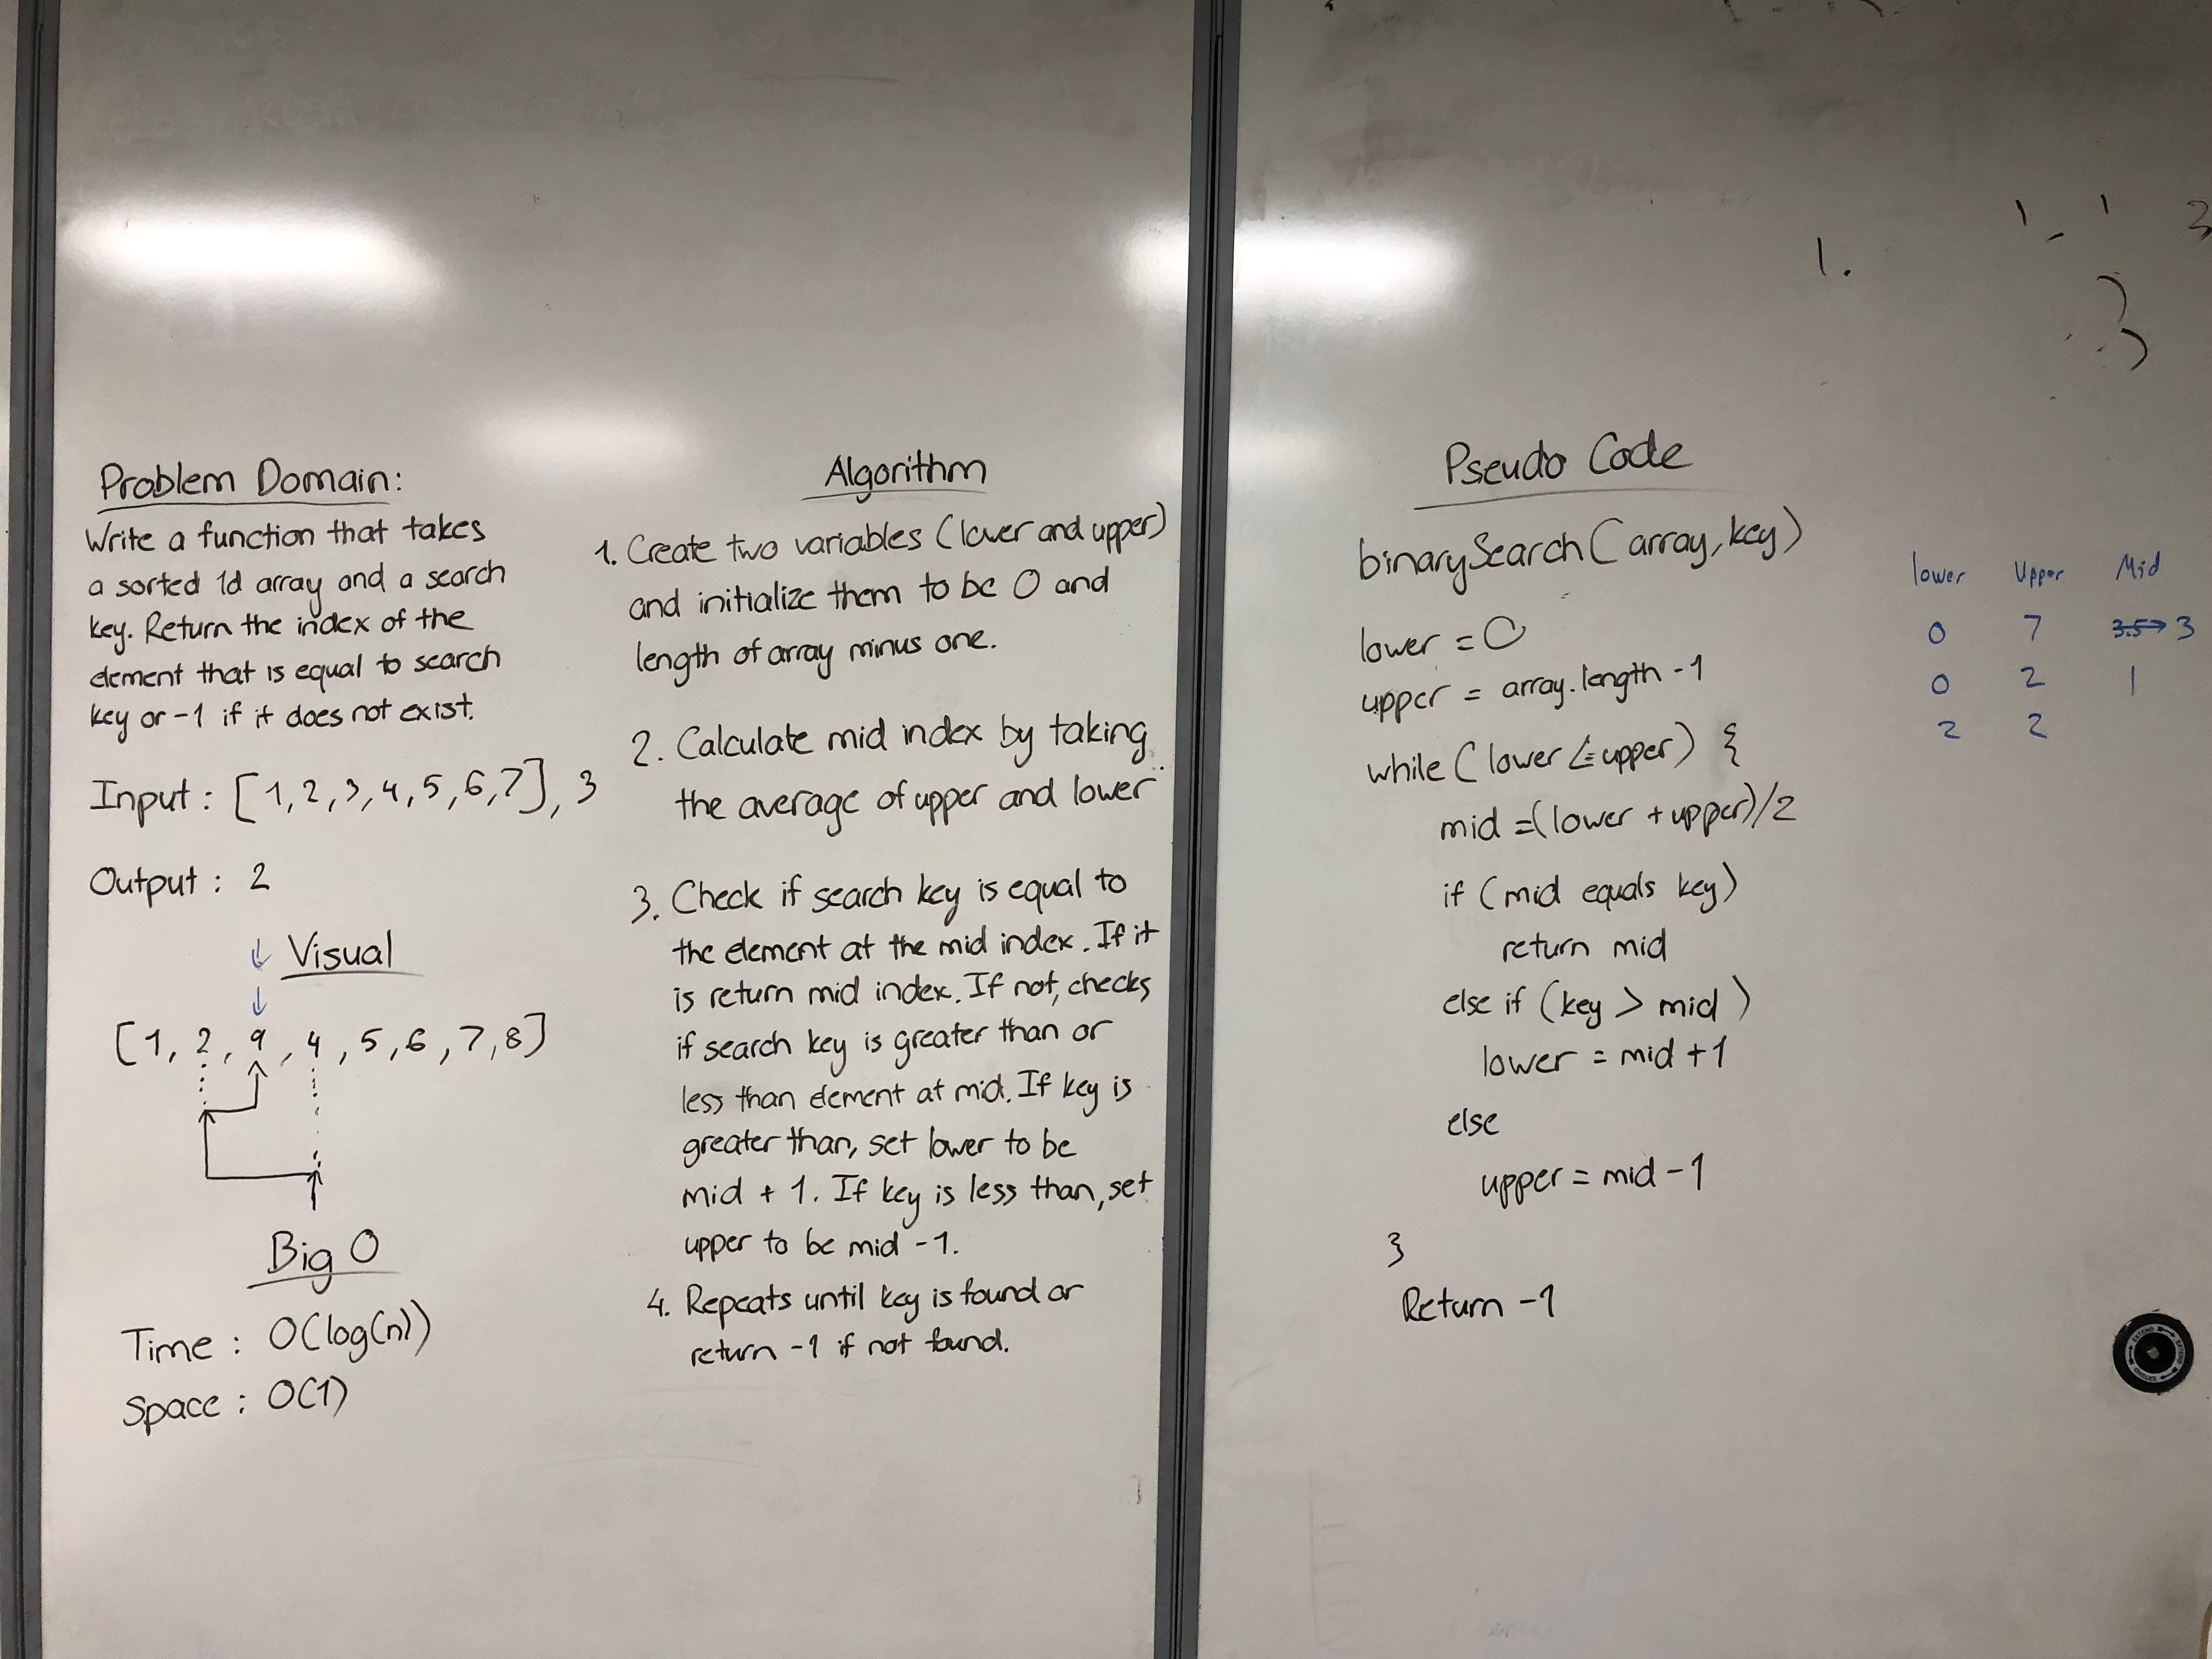 Problem Domain:
Write a function that takes
a sorted 1d array and a search
key. Return the index of the
element that is equal to search
key or -1 if it does not exist.
Input : [1,2,3,4,5,6,7], 3
Output : 2
↓ Visual
↓
[1, 2, 9, 4, 5, 6, 7, 8]
Big O
Time : O(log(n))
Space : O(1)
Algorithm
1. Create two variables (lower and upper)
and initialize them to be 0 and
length of array minus one.
2. Calculate mid index by taking
the average of upper and lower
3. Check if search key is equal to
the element at the mid index. If it
is return mid index. If not, checks
if search key is greater than or
less than element at mid. If key is
greater than, set lower to be
mid + 1. If key is less than, set
upper to be mid -1.
4. Repeats until key is found or
return -1 if not found.
Pseudo Code
binarySearch(array, key)
lower = 0
upper = array.length -1
while (lower <= upper) {
mid =(lower + upper)/2
if (mid equals key)
return mid
else if (key > mid)
lower = mid +1
else
upper = mid -1
}
Return -1
lower Upper Mid
0 7 3.5→3
0 2 1
2 2
1.
3
EXTEND EXTEND EXTEND